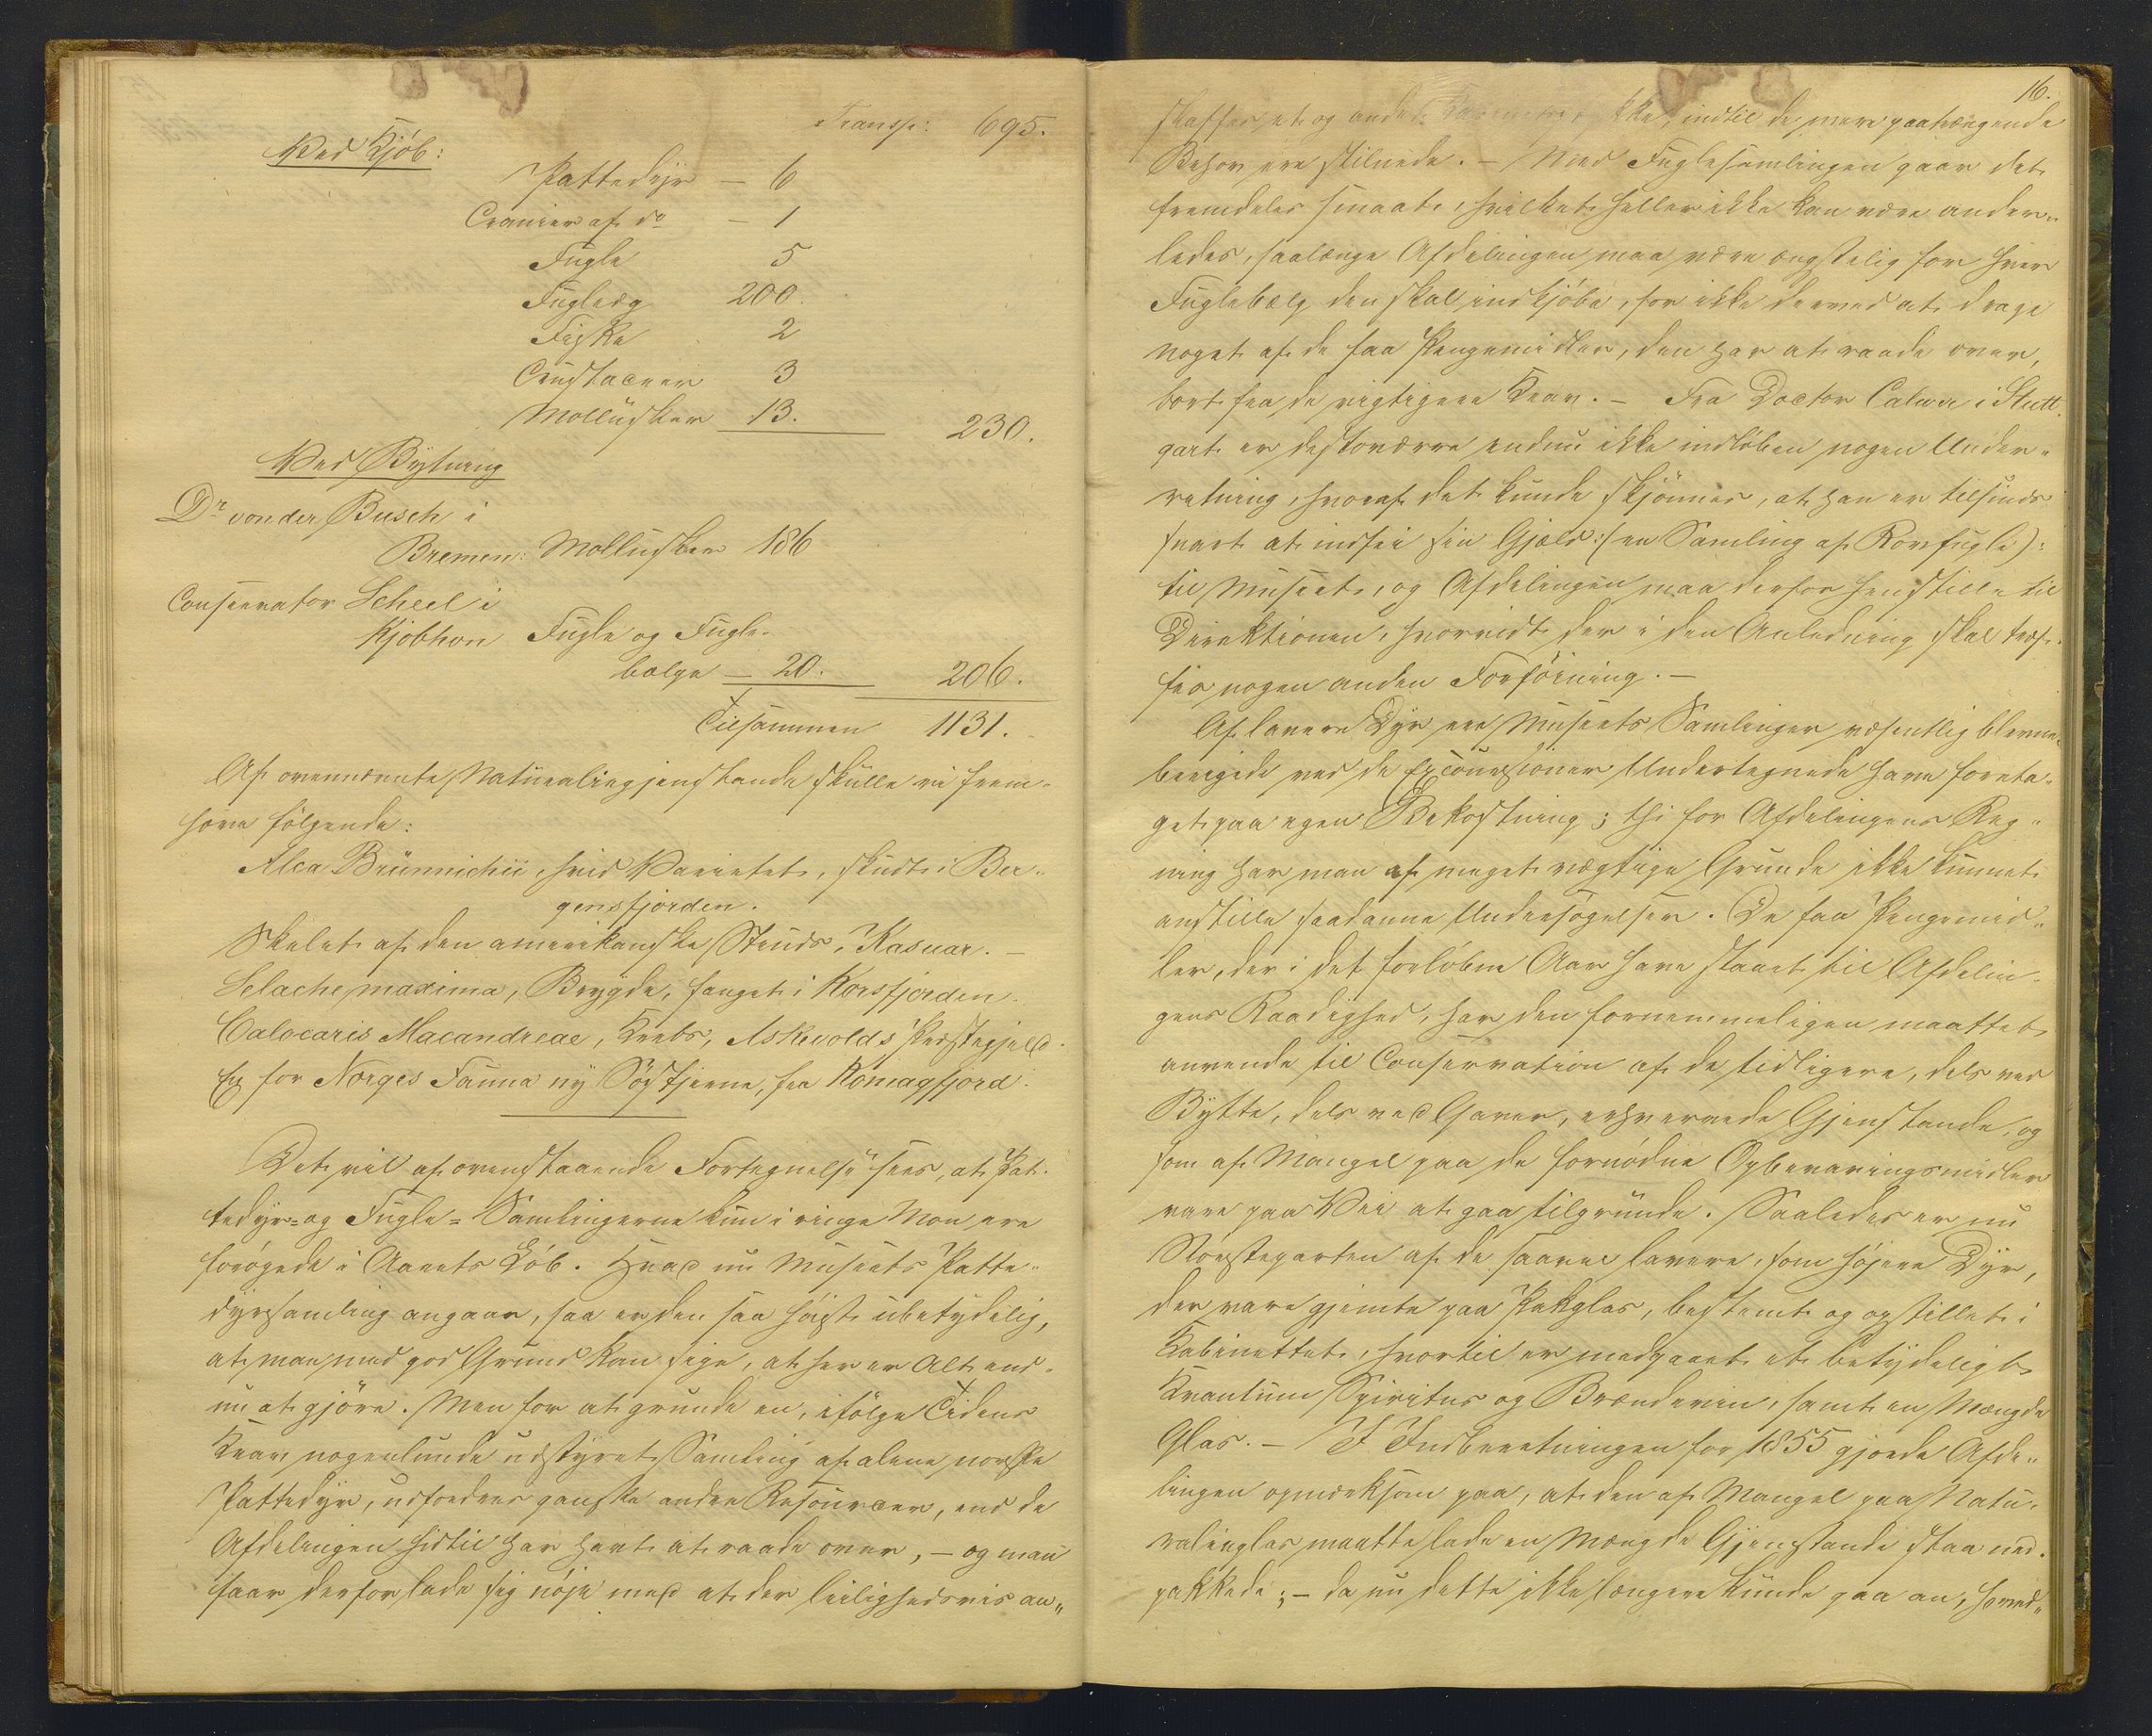 Transp: 695.
Ved Kjöb:
Pattedyr — 6
Cranier af do — 1
Fugle 5
Fugleæg 200.
Fiske 2
Crustaceer 3
Mollusker 13.
230.
Ved Bytning
Dr von der Busch i
Bremen: Mollusker 186
Conservator Scheel i
Kjobhvn Fugle og Fugle-
bælge — 20.
206.
Tilsammen 1131.
Af ovennævnte Naturaliegjenstande skulle vi frem-
hæve følgende:
Alca Brünnichii, hvid Varietet, skudt i Ber-
gensfjorden.
Skelet af den amerikanske Struds, Kasuar. —
Selache maxima, Brygde, fanget i Korsfjorden.
Calocaris Macandreae, Krebs, Askevolds Præstegjeld.
En for Norges Fauna ny Söstjerne, fra Komagfjord.
Det vil af ovenstaaende Fortegnelse sees, at Pat-
tedyr- og Fugle-Samlingerne kun i ringe Mon ere
forögede i Aarets Löb. Hvad nu Museets Patte-
dyrsamling angaar, saa er den saa höist ubetydelig,
at man med god Grund kan sige, at her er Alt end-
nu at gjöre. Men for at grunde en, ifölge Tidens
Krav nogenlunde udstyret Samling af alene norske
Pattedyr, udfordres ganske andre Resourcer, end de
Afdelingen hidtil har havt at raade over, — og man
faar derfor lade sig nöje med at der leilighedsvis an-
16.
skaffes et og andet ikke, indtil de mere paatrængende
Behov ere stillede. — Med Fuglesamlingen gaar det
fremdeles smaat, hvilket heller ikke kan være ander-
ledes, saalænge Afdelingen maa være ængstelig for hver
Fuglebælg den skal indkjöbe, for ikke derved at drage
noget af de faa Pengemidler, den har at raade over,
bort fra de vigtigere Krav. — Fra Doctor Calwer i Stutt-
gart er desværre endnu ikke indløben nogen Under-
retning, hvoraf det kunde skjönnes, at han er tilsinds
snart at indfri sin Gjæld :/ en Samling af Rovfugle):
til Museet, og Afdelingen maa derfor henstille til
Direktionen, hvorvidt der i den Anledning skal træf-
fes nogen anden Forföining. —
Af lavere Dyr ere Museets Samlinger væsentlig blevne
berigede ved de Excursioner Undertegnede have foreta-
get paa egen Bekostning; thi for Afdelingens Reg-
ning har man af meget vægtige Grunde ikke kunnet
anstille saadanne Undersögelser. De faa Pengemid-
ler, der i det forløbne Aar have staaet til Afdelin-
gens Raadighed, har den fornemmeligen maattet
anvende til Conservation af de tidligere, dels ved
Bytte, dels ved Gaver, erhvervede Gjenstande, og
som af Mangel paa de fornödne Opbevaringsmidler
vare paa Vei at gaa tilgrunde. Saaledes er nu
Störsteparten af de saavel lavere, som höjere Dyr,
der vare gjemte paa Pakglas, bestemt og opstillet i
Kabinettet, hvortil er medgaaet et betydeligt
Kvantum Spiritus og Brændeviin, samt en Mængde
Glas. — I Indberetningen for 1855 gjorde Afde-
lingen opmærksom paa, at den af Mangel paa Natu-
ralieglas maatte lade en Mængde Gjenstande staa ned-
pakkede; — da nu dette ikke længere kunde gaa an, hvad